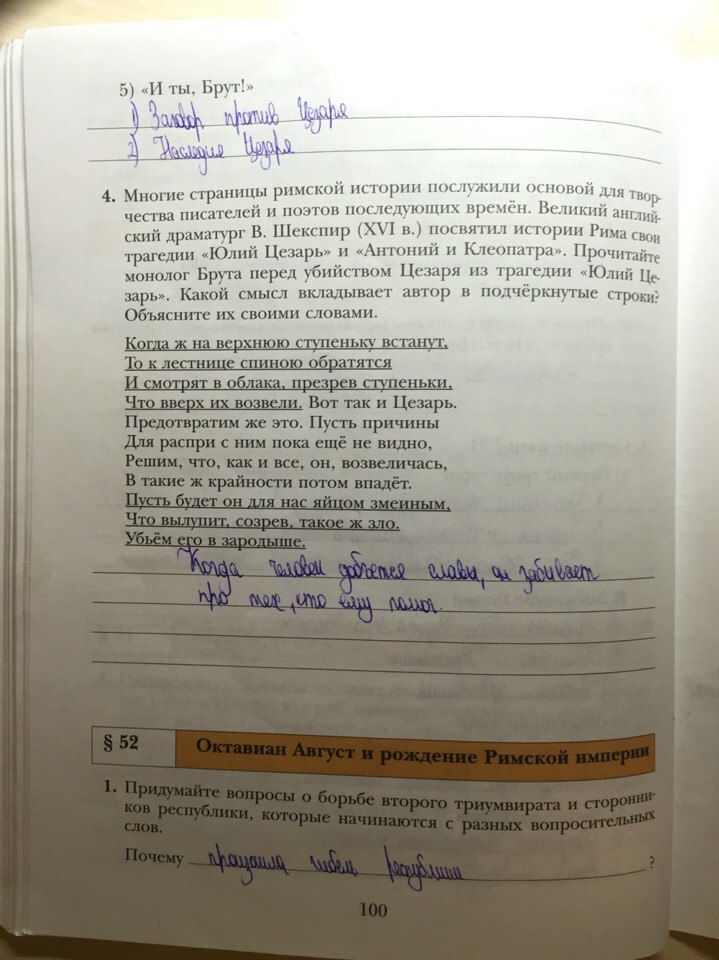 5) «И ты, Брут!»
1) Заговор против Цезаря
2) Наследия Цезаря
4. Многие страницы римской истории послужили основой для твор-
чества писателей и поэтов последующих времён. Великий англий-
ский драматург В. Шекспир (XVI в.) посвятил истории Рима свои
трагедии «Юлий Цезарь» и «Антоний и Клеопатра». Прочитайте
монолог Брута перед убийством Цезаря из трагедии «Юлий Це-
зарь». Какой смысл вкладывает автор в подчёркнутые строки?
Объясните их своими словами.
Когда ж на верхнюю ступеньку встанут,
То к лестнице спиною обратятся
И смотрят в облака, презрев ступеньки,
Что вверх их возвели. Вот так и Цезарь.
Предотвратим же это. Пусть причины
Для распри с ним пока ещё не видно,
Решим, что, как и все, он, возвеличась,
В такие ж крайности потом впадёт.
Пусть будет он для нас яйцом змеиным,
Что вылупит, созрев, такое ж зло.
Убьём его в зародыше.
Когда человек добьется славы, он забывает
про тех, кто ему помог.
§ 52 Октавиан Август и рождение Римской империи
1. Придумайте вопросы о борьбе второго триумвирата и сторонни-
ков республики, которые начинаются с разных вопросительных
слов.
Почему произошла гибель республики ?
100